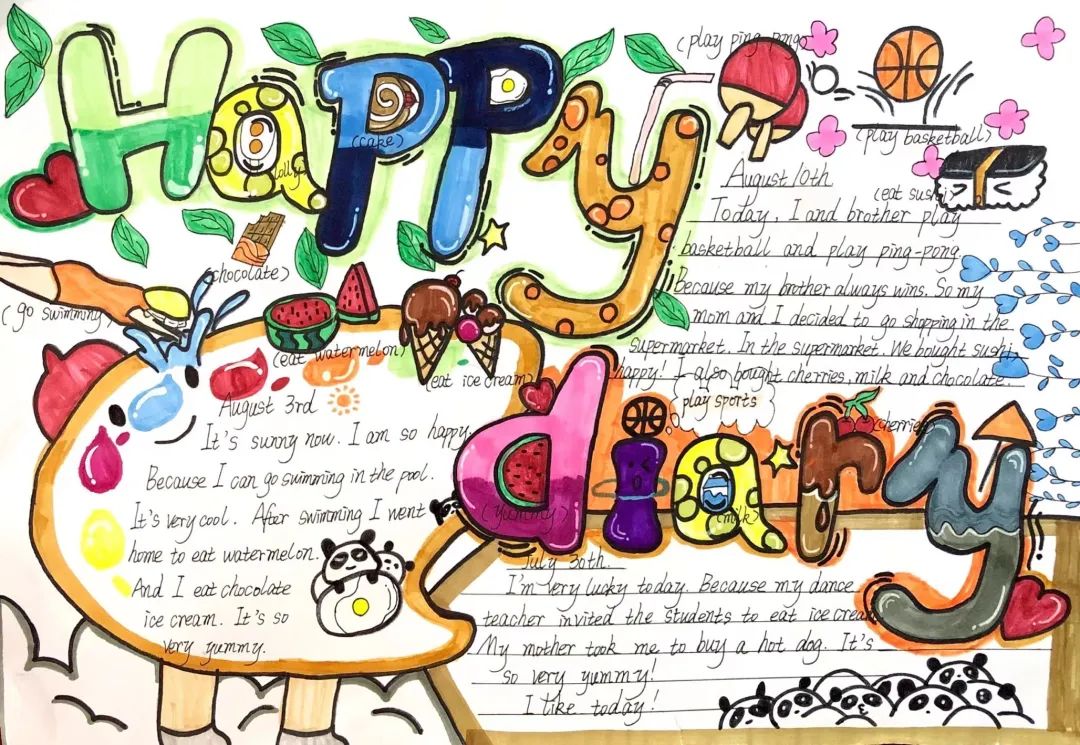 Happy
diary
(play ping-pong)
(play basketball)
(cake)
lolly
(chocolate)
(go swimming)
(eat watermelon)
(eat ice cream)
(eat sushi)
August 10th
Today, I and brother play
basketball and play ping-pong.
Because my brother always wins. So my
mom and I decided to go shopping in the
supermarket. In the supermarket. We bought sushi,
happy! I also bought cherries, milk and chocolate.
(play sports
(cherries)
(yummy)
(milk)
August 3rd
It's sunny now. I am so happy.
Because I can go swimming in the pool.
It's very cool. After swimming I went
home to eat watermelon.
And I eat chocolate
ice cream. It's so
very yummy.
July 30th.
I'm very lucky today. Because my dance
teacher invited the students to eat ice cream.
My mother took me to buy a hot dog. It's
so very yummy!
I like today!